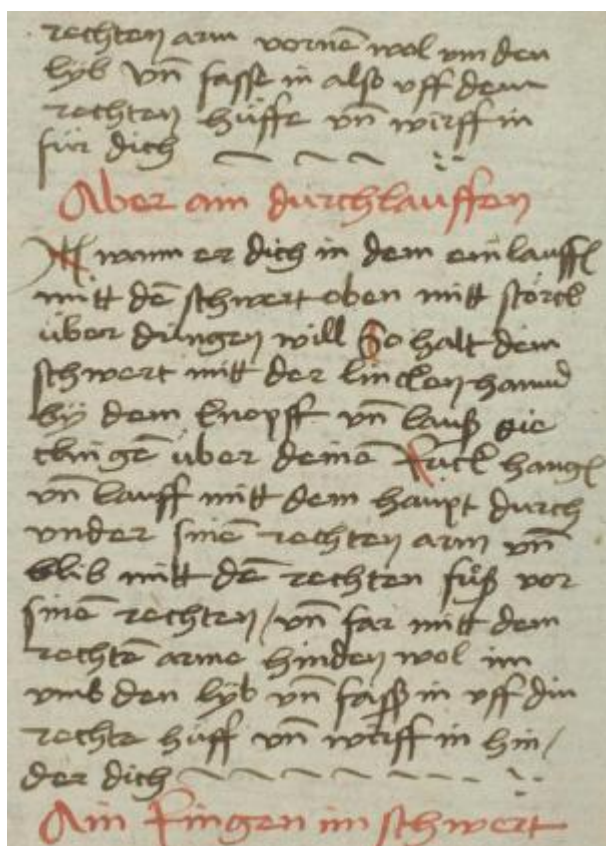 rechten arm vornē wol vm den
lyb vn̄ fasse in also vff dem
rechten hüffe vn̄ wirff in
für dich
Aber ain durchlauffen
wann er dich in dem einlauffē
mitt dē schwert oben mitt störck
über dringen will So halt dein
schwert mitt der lincken hannd
by dem knopff vn̄ lauß die
clingē über deinē Ruck hangē
vn̄ lauff mitt dem haupt durch
vnder sinē rechten arm vn̄
blib mitt dē rechten fůß vor
sinē rechten / vn̄ far mitt dem
rechtē arme hinden wol im
vmb den lyb vn̄ fasß in vff din
rechte hüff vn̄ wirff in hin /
der dich
Ain Ringen im schwert